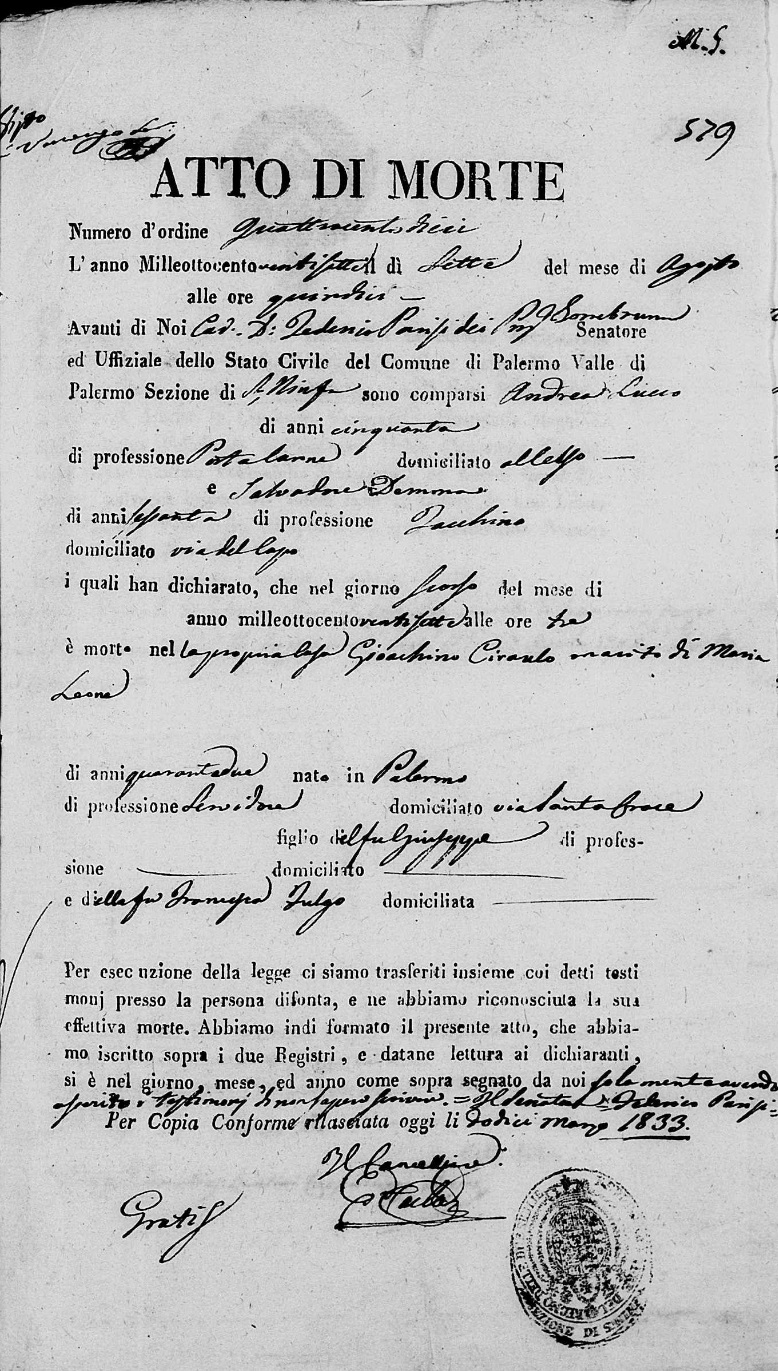 M. S.
579
ATTO DI MORTE
Numero d'ordine quattrocento dieci
L'anno Milleottocento ventisette il dì Sette del mese di Agosto
alle ore quindici —
Avanti di Noi Cav. D: Federico Parisi dei Senatore
ed Uffiziale dello Stato Civile del Comune di Palermo Valle di
Palermo Sezione di S. Ninfa sono comparsi Andrea Lucco
di anni cinquanta
di professione domiciliato all —
e Salvadore Demma
di anni sessanta di professione Facchino
domiciliato via del Capo
i quali han dichiarato, che nel giorno scorso del mese di
anno milleottocento ventisette alle ore tre
è morto nella propria Casa Gioachino Ciraulo marito di Maria
Leone
di anni quarantadue nato in Palermo
di professione Servidore domiciliato via Santa Croce
figlio del fu Giuseppe di profes-
sione domiciliato
e della fu Francesca Fulgo domiciliata
Per esecuzione della legge ci siamo trasferiti insieme coi detti testi
monj presso la persona difonta, e ne abbiamo riconosciuta la sua
effettiva morte. Abbiamo indi formato il presente atto, che abbia-
mo iscritto sopra i due Registri, e datane lettura ai dichiaranti,
si è nel giorno, mese, ed anno come sopra segnato da noi solamente avendo
asserito i testimonj di non sapere scrivere. = Il Senatore = Federico Parisi =
Per Copia Conforme rilasciata oggi li dodici Marzo 1833.
Il Cancelliere
Gratis